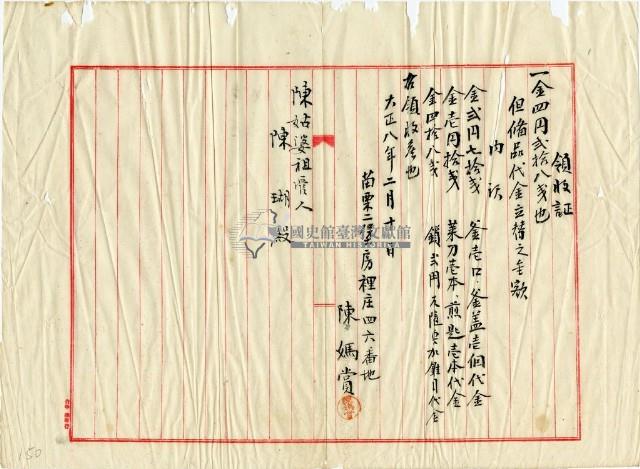 領收証
一金四円弍拾八戋也
但備品代金立替之金額
內訳
金弍円七拾戋 釜壱口、釜盖壱個代金
金壱円拾戋 菜刀壱本、煎匙壱本代金
金四拾八戋 鎖弍円
右領收候也
大正八年二月十 日
苗栗二 房裡庄四六番地
陳媽賞
陳姑婆祖管理人
陳瑚殿
國史館臺灣文獻館
TAIWAN HISTORICA
150